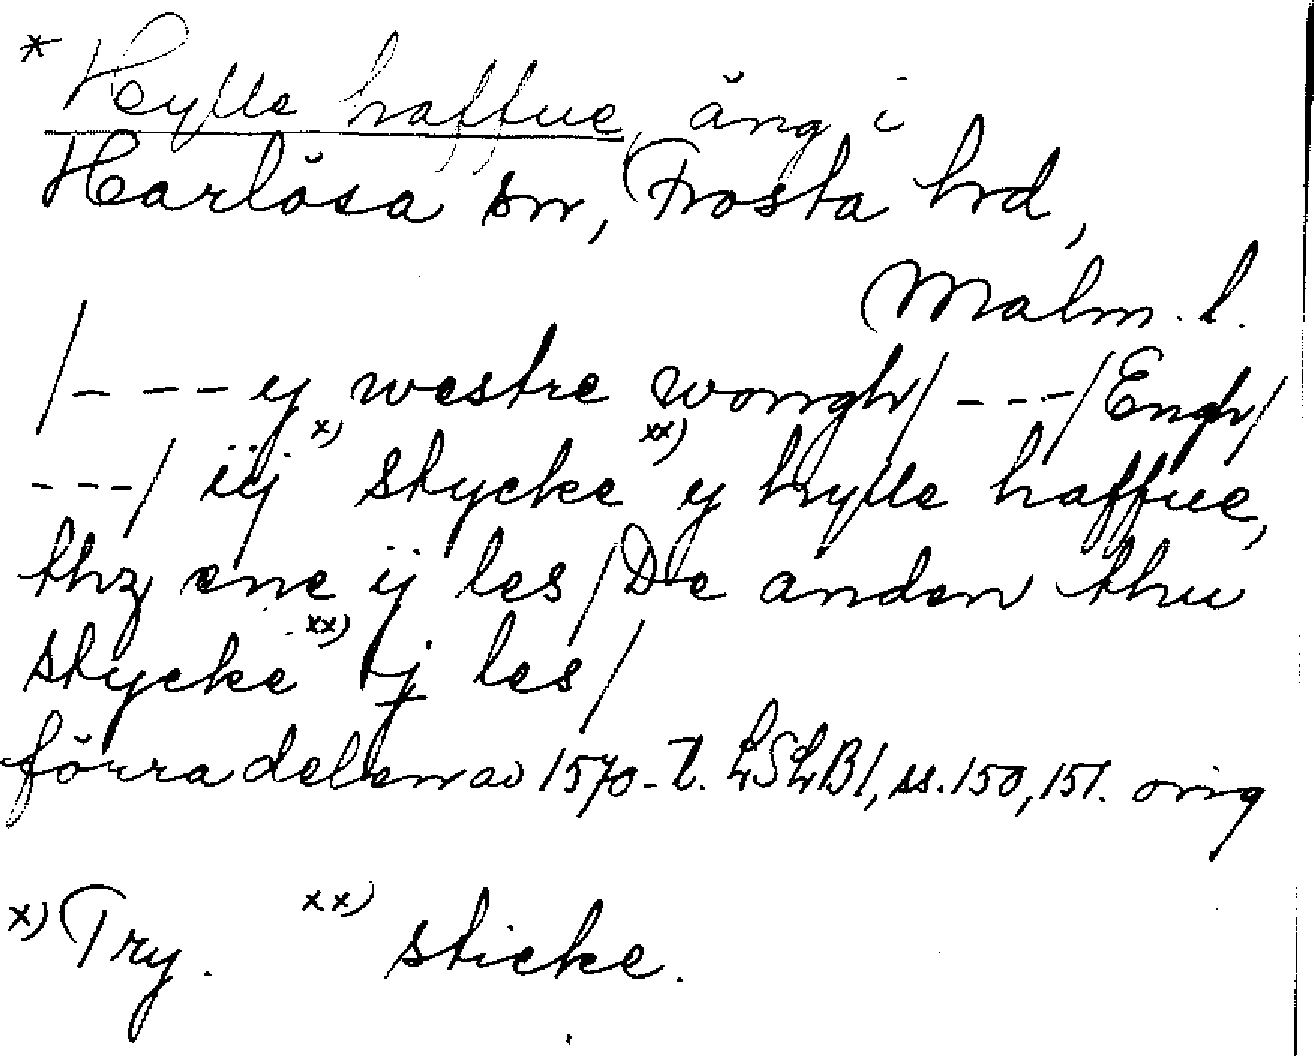 * Hylle haffue, äng i
Harlösa sn, Frosta hrd,
Malm. l.
/--- y westre wongh/ ---/Engh/
---/ iij x) stycke xx) y hylle haffue,
thz ene ij les/De anden thu
stycke xx) ij les/
förra delen av 1570-t. LSLB1, ss. 150, 151. orig
x) Try. xx) sticke.